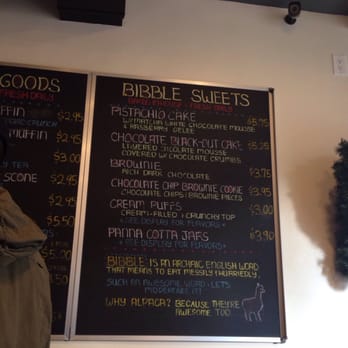 GOODS
FRESH DAILY
FFIN $2.95
MUFFIN $2.95
$3.00
TEA
SCONE $2.95
$2.95
$5.50
BIBBLE SWEETS
BAKED IN-HOUSE + FRESH DAILY
PISTACHIO CAKE $5.95
W/ MATCHA WHITE CHOCOLATE MOUSSE
& RASPBERRY GELEE
CHOCOLATE BLACK-OUT CAKE $5.25
LAYERED CHOCOLATE MOUSSE
COVERED W/ CHOCOLATE CRUMBS
BROWNIE $3.75
RICH DARK CHOCOLATE
CHOCOLATE CHIP BROWNIE COOKIE $3.95
CHOCOLATE CHIPS & BROWNIE PIECES
CREAM PUFFS $3.00
CREAM-FILLED & CRUNCHY TOP
*SEE DISPLAY FOR FLAVORS*
PANNA COTTA JARS $3.90
*SEE DISPLAY FOR FLAVORS*
"BIBBLE" IS AN ARCHAIC ENGLISH WORD
THAT MEANS TO EAT MESSILY & HURRIEDLY.
SUCH AN AWESOME WORD, LET'S
MODERNIZE IT!
WHY ALPACA? BECAUSE THEY'RE
AWESOME TOO